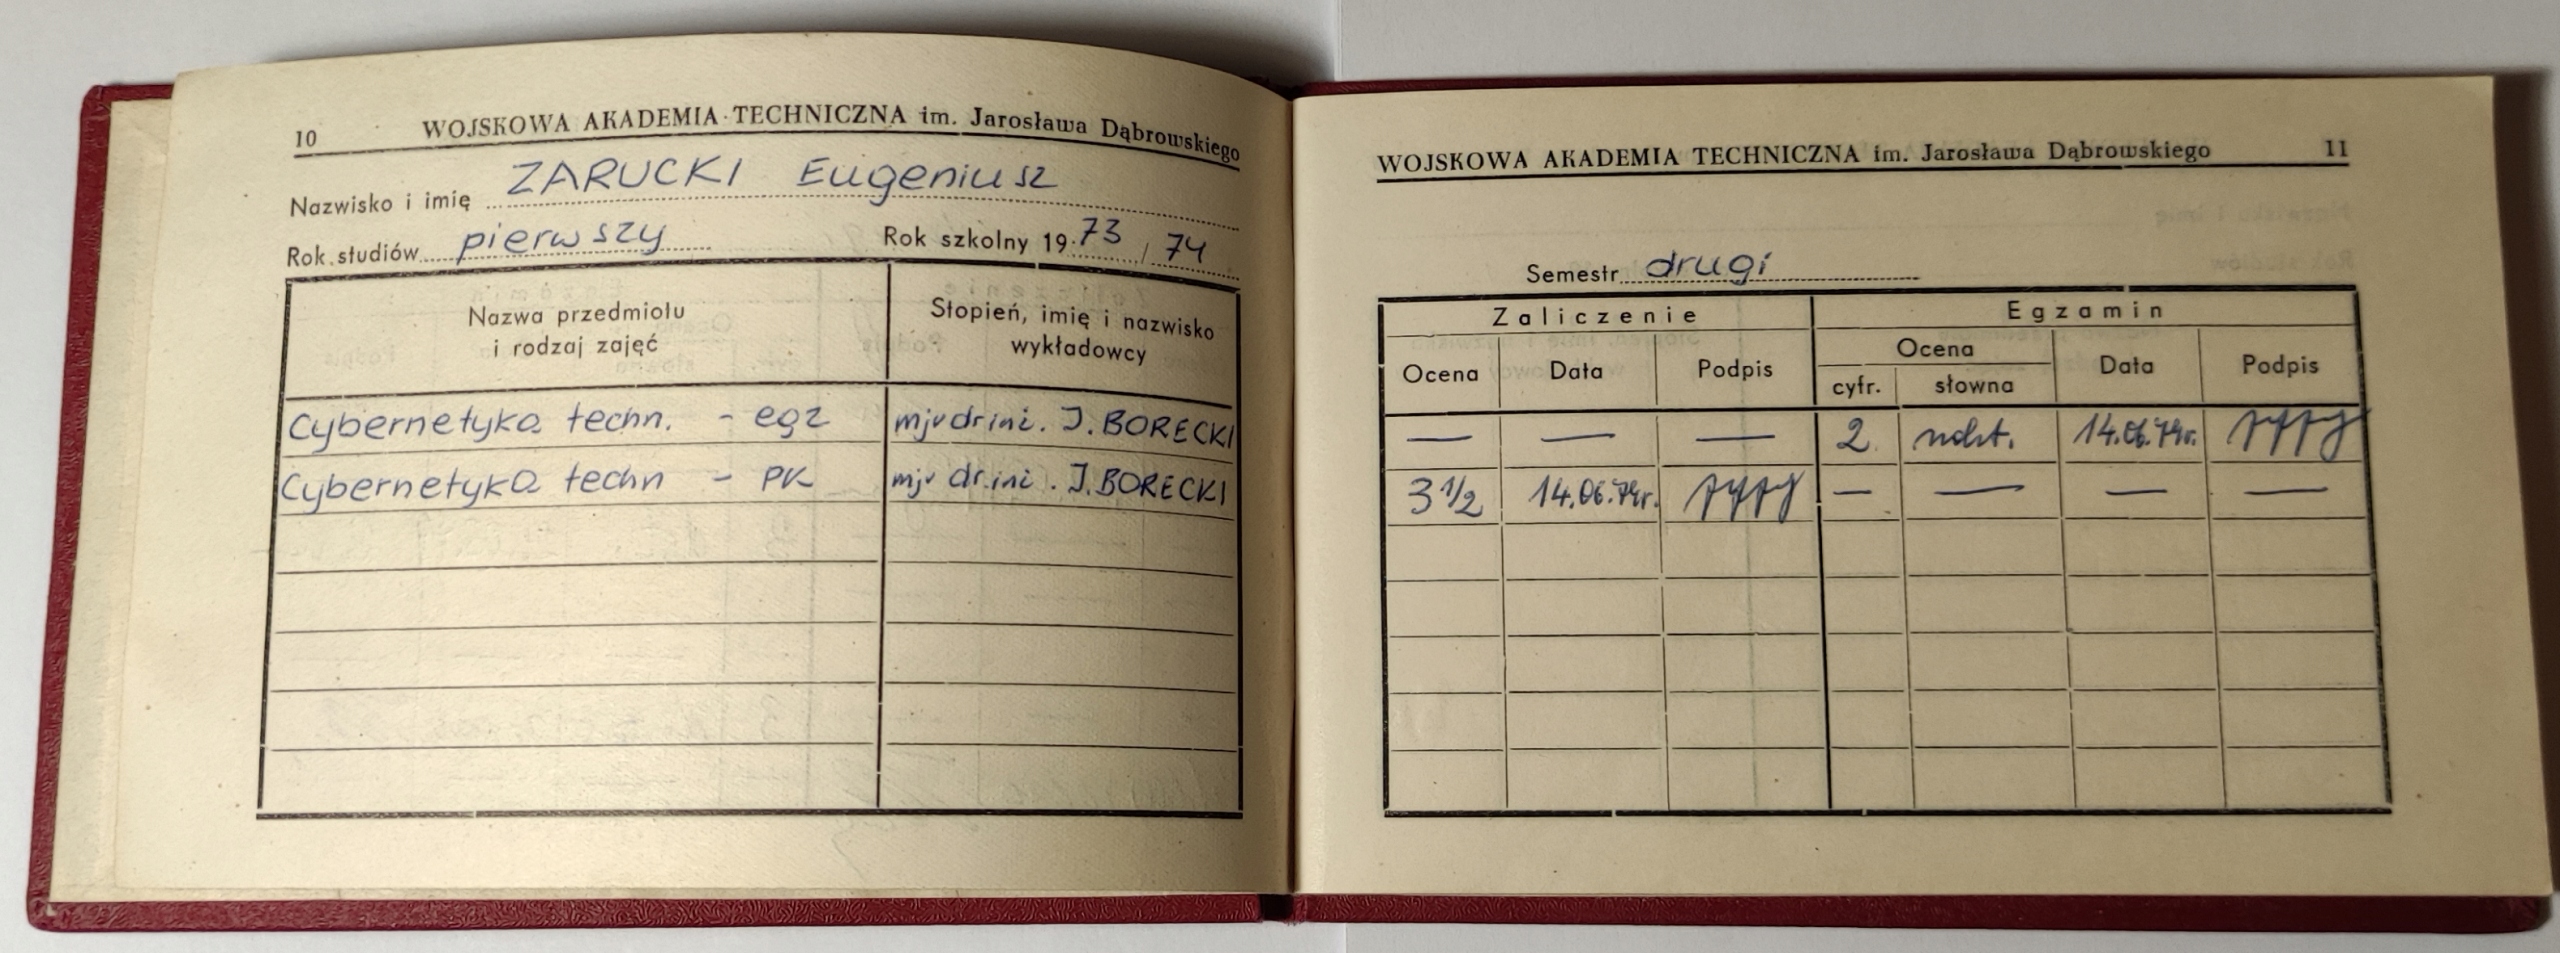 10 WOJSKOWA AKADEMIA TECHNICZNA im. Jarosława Dąbrowskiego
Nazwisko i imię ZARUCKI Eugeniusz
Rok studiów pierwszy Rok szkolny 1973/74
Nazwa przedmiotu i rodzaj zajęć
Stopień, imię i nazwisko wykładowcy
Cybernetyka techn. - egz mjr dr inż. J. BORECKI
Cybernetyka techn - PK mjr dr. inż. J. BORECKI
WOJSKOWA AKADEMIA TECHNICZNA im. Jarosława Dąbrowskiego 11
Semestr drugi
Zaliczenie Egzamin
Ocena Data Podpis Ocena Data Podpis
cyfr. słowna
— — — 2 ndst. 14.06.74r.
3 1/2 14.06.74r. — — — —